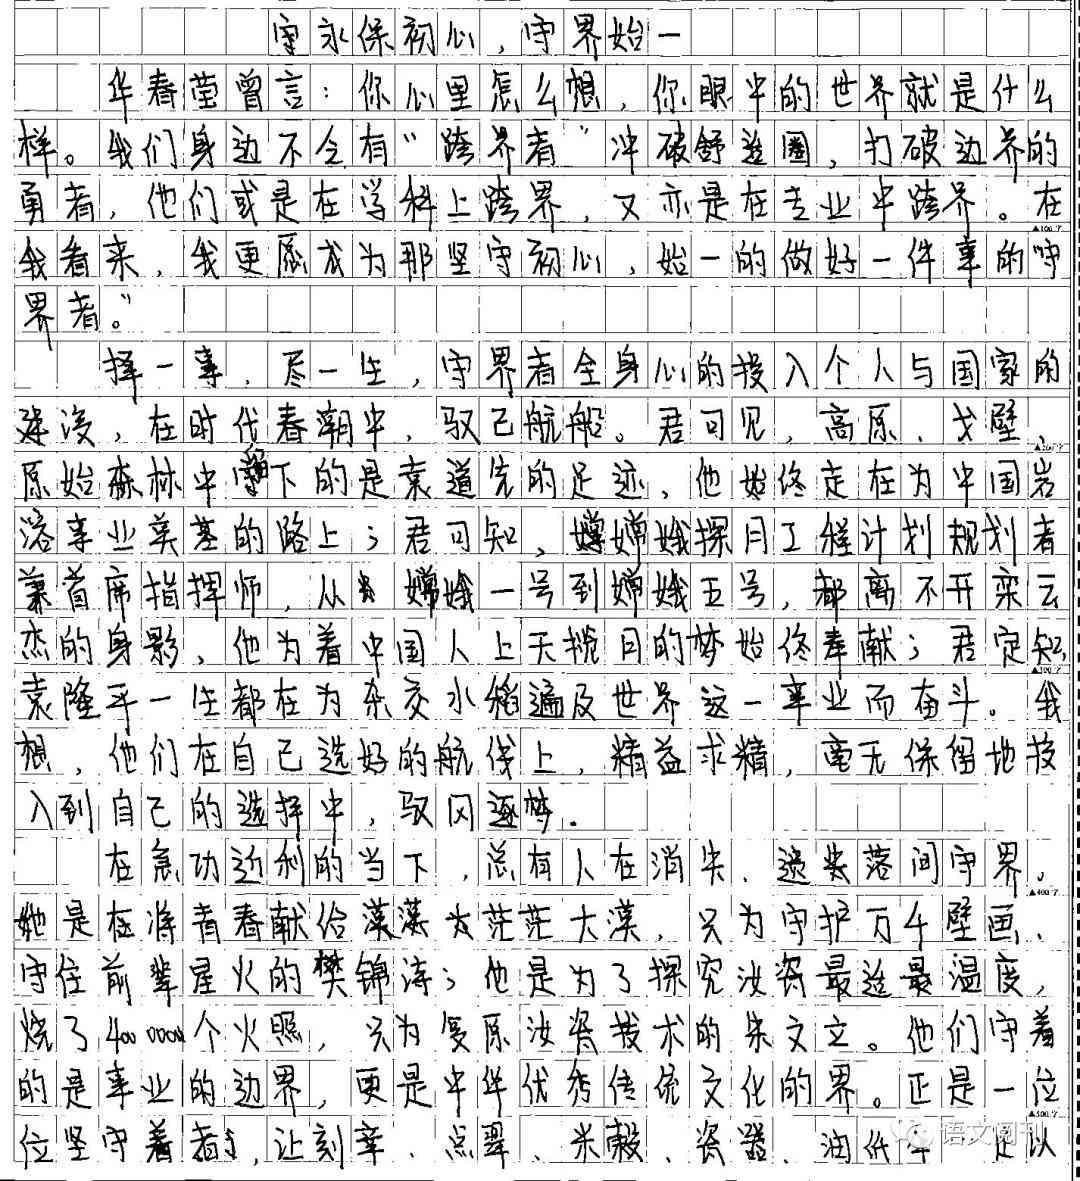 守永保初心，守界始一
华春莹曾言：你心里怎么想，你眼中的世界就是什么
样。我们身边不会有“跨界者”冲破舒适圈，打破边界的
勇者，他们或是在学科上跨界，又亦是在专业中跨界。在
▲100字
我看来，我更愿成为那坚守初心，始一的做好一件事的守
界者。”
择一事，尽一生，守界者全身心的投入个人与国家的
建设，在时代春潮中，驭己航船。君可见，高原、戈壁、
▲200字
原始森林中留下的是袁道先的足迹，他始终走在为中国岩
溶事业奠基的路上；君可知，嫦娥探月工程计划规划者
兼首席指挥师，从嫦娥一号到嫦娥五号，都离不开栾云
杰的身影，他为着中国人上天揽月的梦始终奉献；君定知，
▲300字
袁隆平一生都在为杂交水稻遍及世界这一事业而奋斗。我
想，他们在自己选好的航线上，精益求精，毫无保留地投
入到自己的选择中，驭风逐梦.
在急功近利的当下，总有人在消失、遗失落间守界。
▲400字
她是在将青春献给茫茫大漠，只为守护万千壁画、
守住前辈星火的樊锦涛；他是为了探究汝瓷最适最温度，
烧了400000个火照，只为复原汝瓷技术的朱文立。他们守着
的是事业的边界，更是中华优秀传统文化的界。正是一位
▲500字
位坚守着者，让刻章、点翠、米毂、瓷器、油纸 是以
语文阅刊